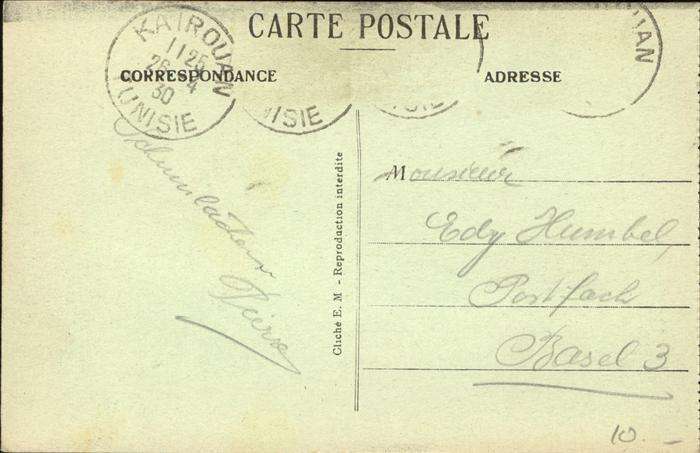 CARTE POSTALE
CORRESPONDANCE
ADRESSE
KAIROUAN
11 25
26 - 4
30
TUNISIE
NISIE
ISIE
UAN
Pierre
Cliché E. M - Reproduction interdite
Monsieur
Edy Humbel,
Postfach
Basel 3
10.-